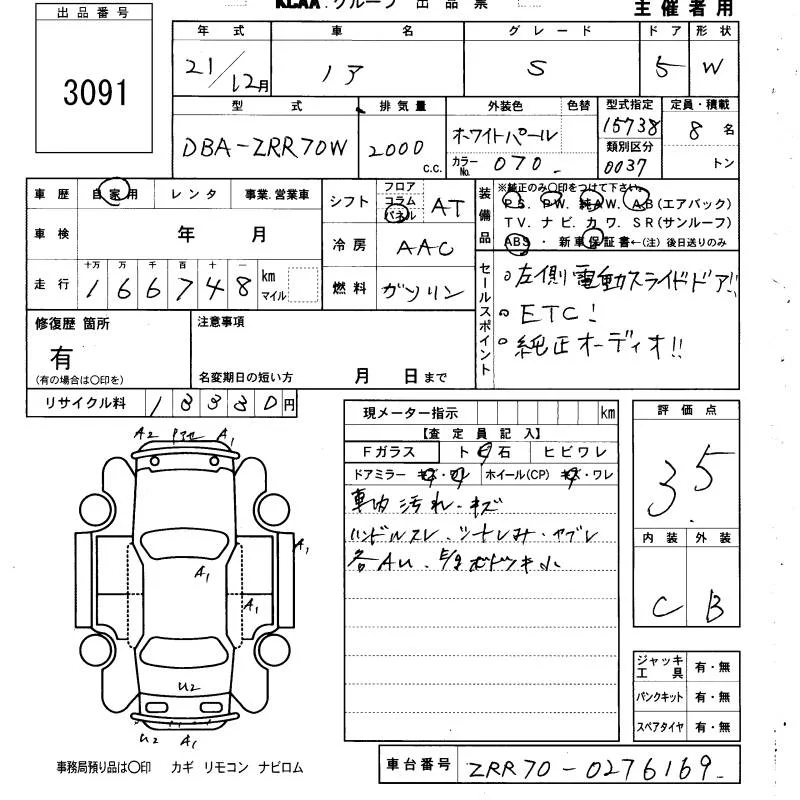 KCAA グループ 出品票
主催者用
出品番号
3091
年式 車名 グレード ドア 形状
21/12月 ノア S 5 W
型式 排気量 外装色 色替 型式指定 定員・積載
DBA-ZRR70W 2000 c.c. ホワイトパール 15738 8名
カラーNo. 070 類別区分 0037 トン
車歴 自家用 レンタ 事業.営業車
シフト フロア コラム パネル AT
装備品 ※純正のみ〇印をつけて下さい。
PS. PW. 純AW. AB(エアバック)
TV. ナビ. カワ. SR(サンルーフ)
ABS ・ 新車保証書←(注) 後日送りのみ
車検 年 月
冷房 AAC
走行 十万 万 千 百 十 一
166748 km マイル
燃料 ガソリン
セールスポイント
左側電動スライドドア!!
ETC!
純正オーディオ!!
修復歴 箇所
有
(有の場合は〇印を)
注意事項
名変期日の短い方 月 日まで
リサイクル料 13330円
現メーター指示 km
【査定員記入】
Fガラス ト石 ヒビワレ
ドアミラー キズ・ワレ ホイール(CP) キズ・ワレ
車内汚れ・キズ
ハンドルスレ、シートしみ・ヤブレ
各AU、
評価点
3.5
内装 外装
C B
A2 A1
A1
A1
A1
U2
U2 A1
ジャッキ工具 有・無
パンクキット 有・無
スペアタイヤ 有・無
事務局預り品は〇印 カギ リモコン ナビロム
車台番号 ZRR70-0276169